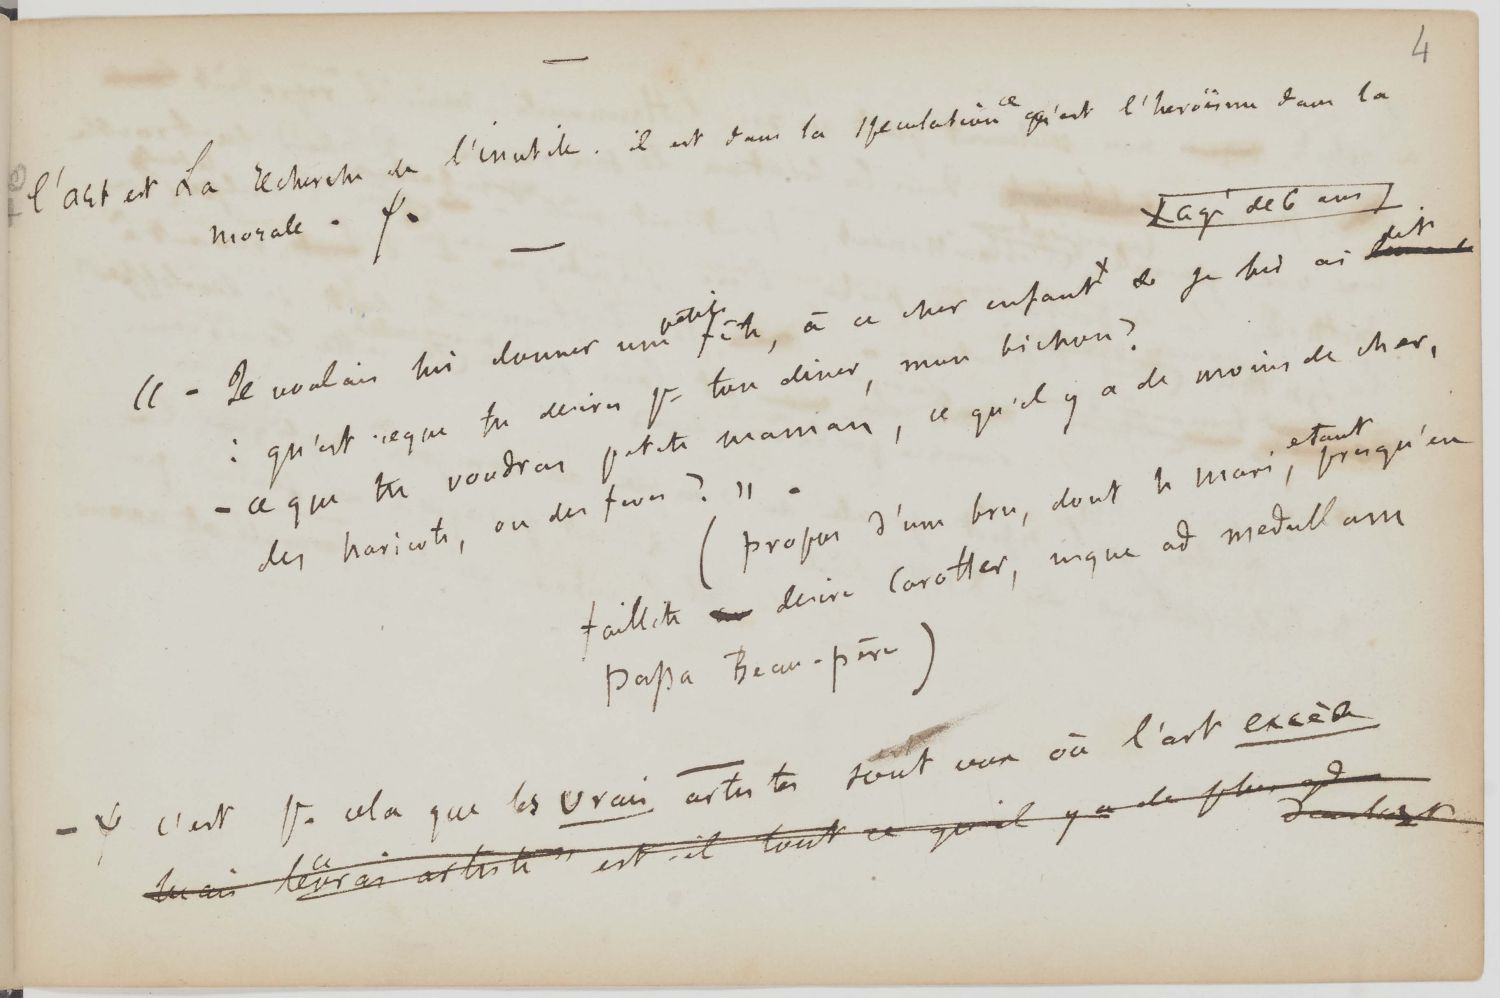 4
l'art est La recherche de l'inutile. il est dans la speculation ce qu'est l'heroïsme dans la
morale.
[agé de 6 ans]
« - Je voulais lui donner une petite fête, à ce cher enfant x & je lui ai dit
: qu'est ceque tu desires pr ton diner, mon bichon?
- ce que tu voudras petite maman, ce qu'il y a de moins de cher,
des haricots, ou des feves? » .
(propos d'une bru, dont le mari, etant presqu'en
faillite desire Carotter, usque ad medullam
papa Beau-père)
- c'est pr. cela que les vrais artistes sont ceux où l'art excède
mais le vrai artiste est-il tout ce qu'il y a de plus